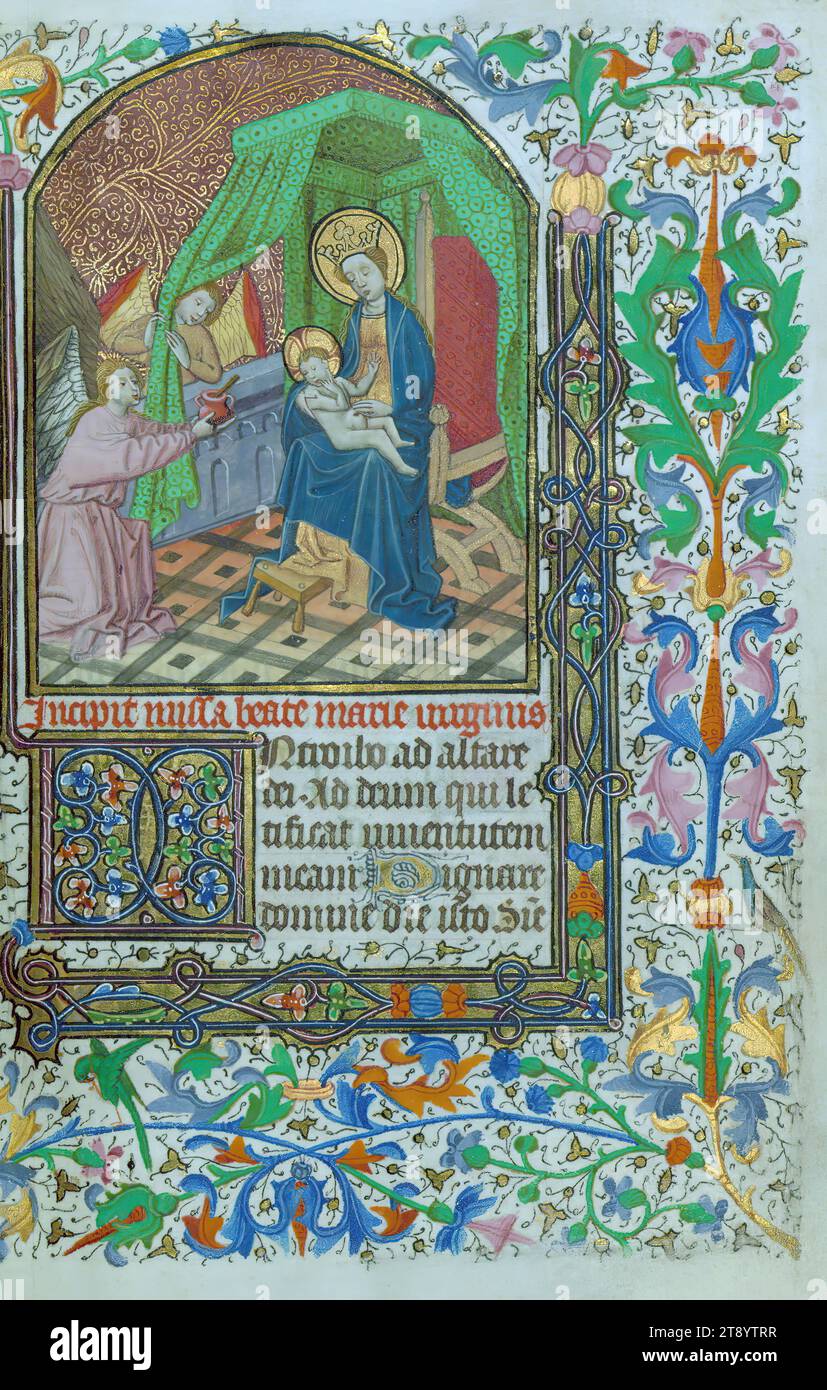 Incipit missa beate marie uirginis
INtroibo ad altare
dei. Ad deum qui le
tificat iuuentutem
meam Dignare
domine die isto Siē
alamy
Image ID: 2T8YTRR
www.alamy.com